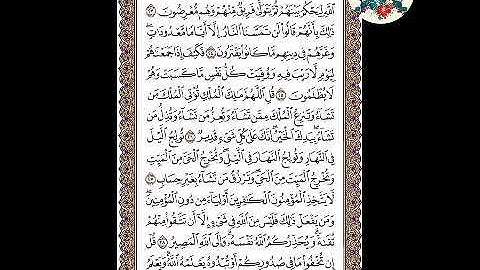 ٱللَّهِ لِيَحْكُمَ بَيْنَهُمْ ثُمَّ يَتَوَلَّىٰ فَرِيقٌ مِّنْهُمْ وَهُم مُّعْرِضُونَ ٢٣
ذَٰلِكَ بِأَنَّهُمْ قَالُوا۟ لَن تَمَسَّنَا ٱلنَّارُ إِلَّآ أَيَّامًا مَّعْدُودَٰتٍ
وَغَرَّهُمْ فِى دِينِهِم مَّا كَانُوا۟ يَفْتَرُونَ ٢٤ فَكَيْفَ إِذَا جَمَعْنَٰهُمْ
لِيَوْمٍ لَّا رَيْبَ فِيهِ وَوُفِّيَتْ كُلُّ نَفْسٍ مَّا كَسَبَتْ وَهُمْ
لَا يُظْلَمُونَ ٢٥ قُلِ ٱللَّهُمَّ مَٰلِكَ ٱلْمُلْكِ تُؤْتِى ٱلْمُلْكَ مَن
تَشَآءُ وَتَنزِعُ ٱلْمُلْكَ مِمَّن تَشَآءُ وَتُعِزُّ مَن تَشَآءُ وَتُذِلُّ مَن
تَشَآءُ بِيَدِكَ ٱلْخَيْرُ إِنَّكَ عَلَىٰ كُلِّ شَىْءٍ قَدِيرٌ ٢٦ تُولِجُ ٱلَّيْلَ
فِى ٱلنَّهَارِ وَتُولِجُ ٱلنَّهَارَ فِى ٱلَّيْلِ وَتُخْرِجُ ٱلْحَىَّ مِنَ ٱلْمَيِّتِ
وَتُخْرِجُ ٱلْمَيِّتَ مِنَ ٱلْحَىِّ وَتَرْزُقُ مَن تَشَآءُ بِغَيْرِ حِسَابٍ ٢٧
لَّا يَتَّخِذِ ٱلْمُؤْمِنُونَ ٱلْكَٰفِرِينَ أَوْلِيَآءَ مِن دُونِ ٱلْمُؤْمِنِينَ
وَمَن يَفْعَلْ ذَٰلِكَ فَلَيْسَ مِنَ ٱللَّهِ فِى شَىْءٍ إِلَّآ أَن تَتَّقُوا۟ مِنْهُمْ
تُقَىٰةً وَيُحَذِّرُكُمُ ٱللَّهُ نَفْسَهُۥ وَإِلَى ٱللَّهِ ٱلْمَصِيرُ ٢٨ قُلْ
إِن تُخْفُوا۟ مَا فِى صُدُورِكُمْ أَوْ تُبْدُوهُ يَعْلَمْهُ ٱللَّهُ وَيَعْلَمُ